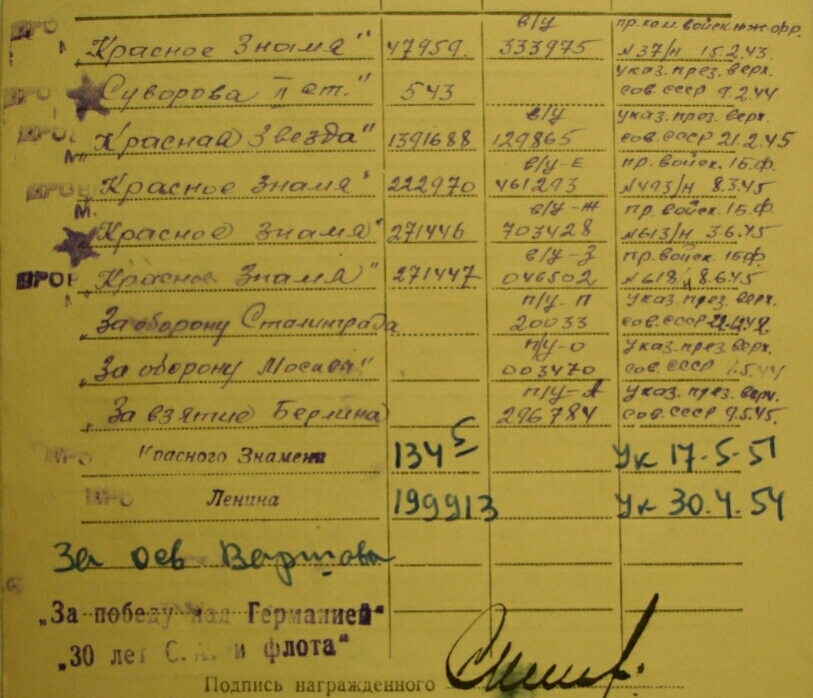 в/у пр. ком. войск. юж. фр.
"Красное Знамя" 47959. 333975 №37/н 15.2.43.
указ. през. верх.
"Суворова II ст." 543 сов. СССР 9.2.44
в/у указ. през. верх.
"Красная Звезда" 1391688 129865 сов. СССР 21.2.45
в/у-Е пр. войск. 1Б.Ф.
"Красное Знамя" 222970 461293 №493/н 8.3.45
в/у-Ж пр. войск. 1Б.Ф.
"Красное Знамя" 271446 703428 №613/н 3.6.45
в/у-З пр. войск. 1БФ.
"Красное Знамя" 271447 046502 №618/н 8.6.45
п/у-П указ. през. верх.
"За оборону Сталинграда 20033 сов. СССР
п/у-О указ. през. верх.
"За оборону Москвы" 003470 сов. СССР 1.5.44
п/у-А указ. през. верх.
"За взятие Берлина 296784 сов. СССР 9.5.45.
Красного Знамени 1345 Ук 17-5-51
Ленина 199913 Ук 30.4.54
За осв Варшова
"За победу над Германией"
"30 лет С. А. и флота"
Подпись награжденного